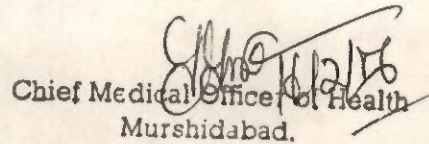 Chief Medical Officer of Health
Murshidabad.